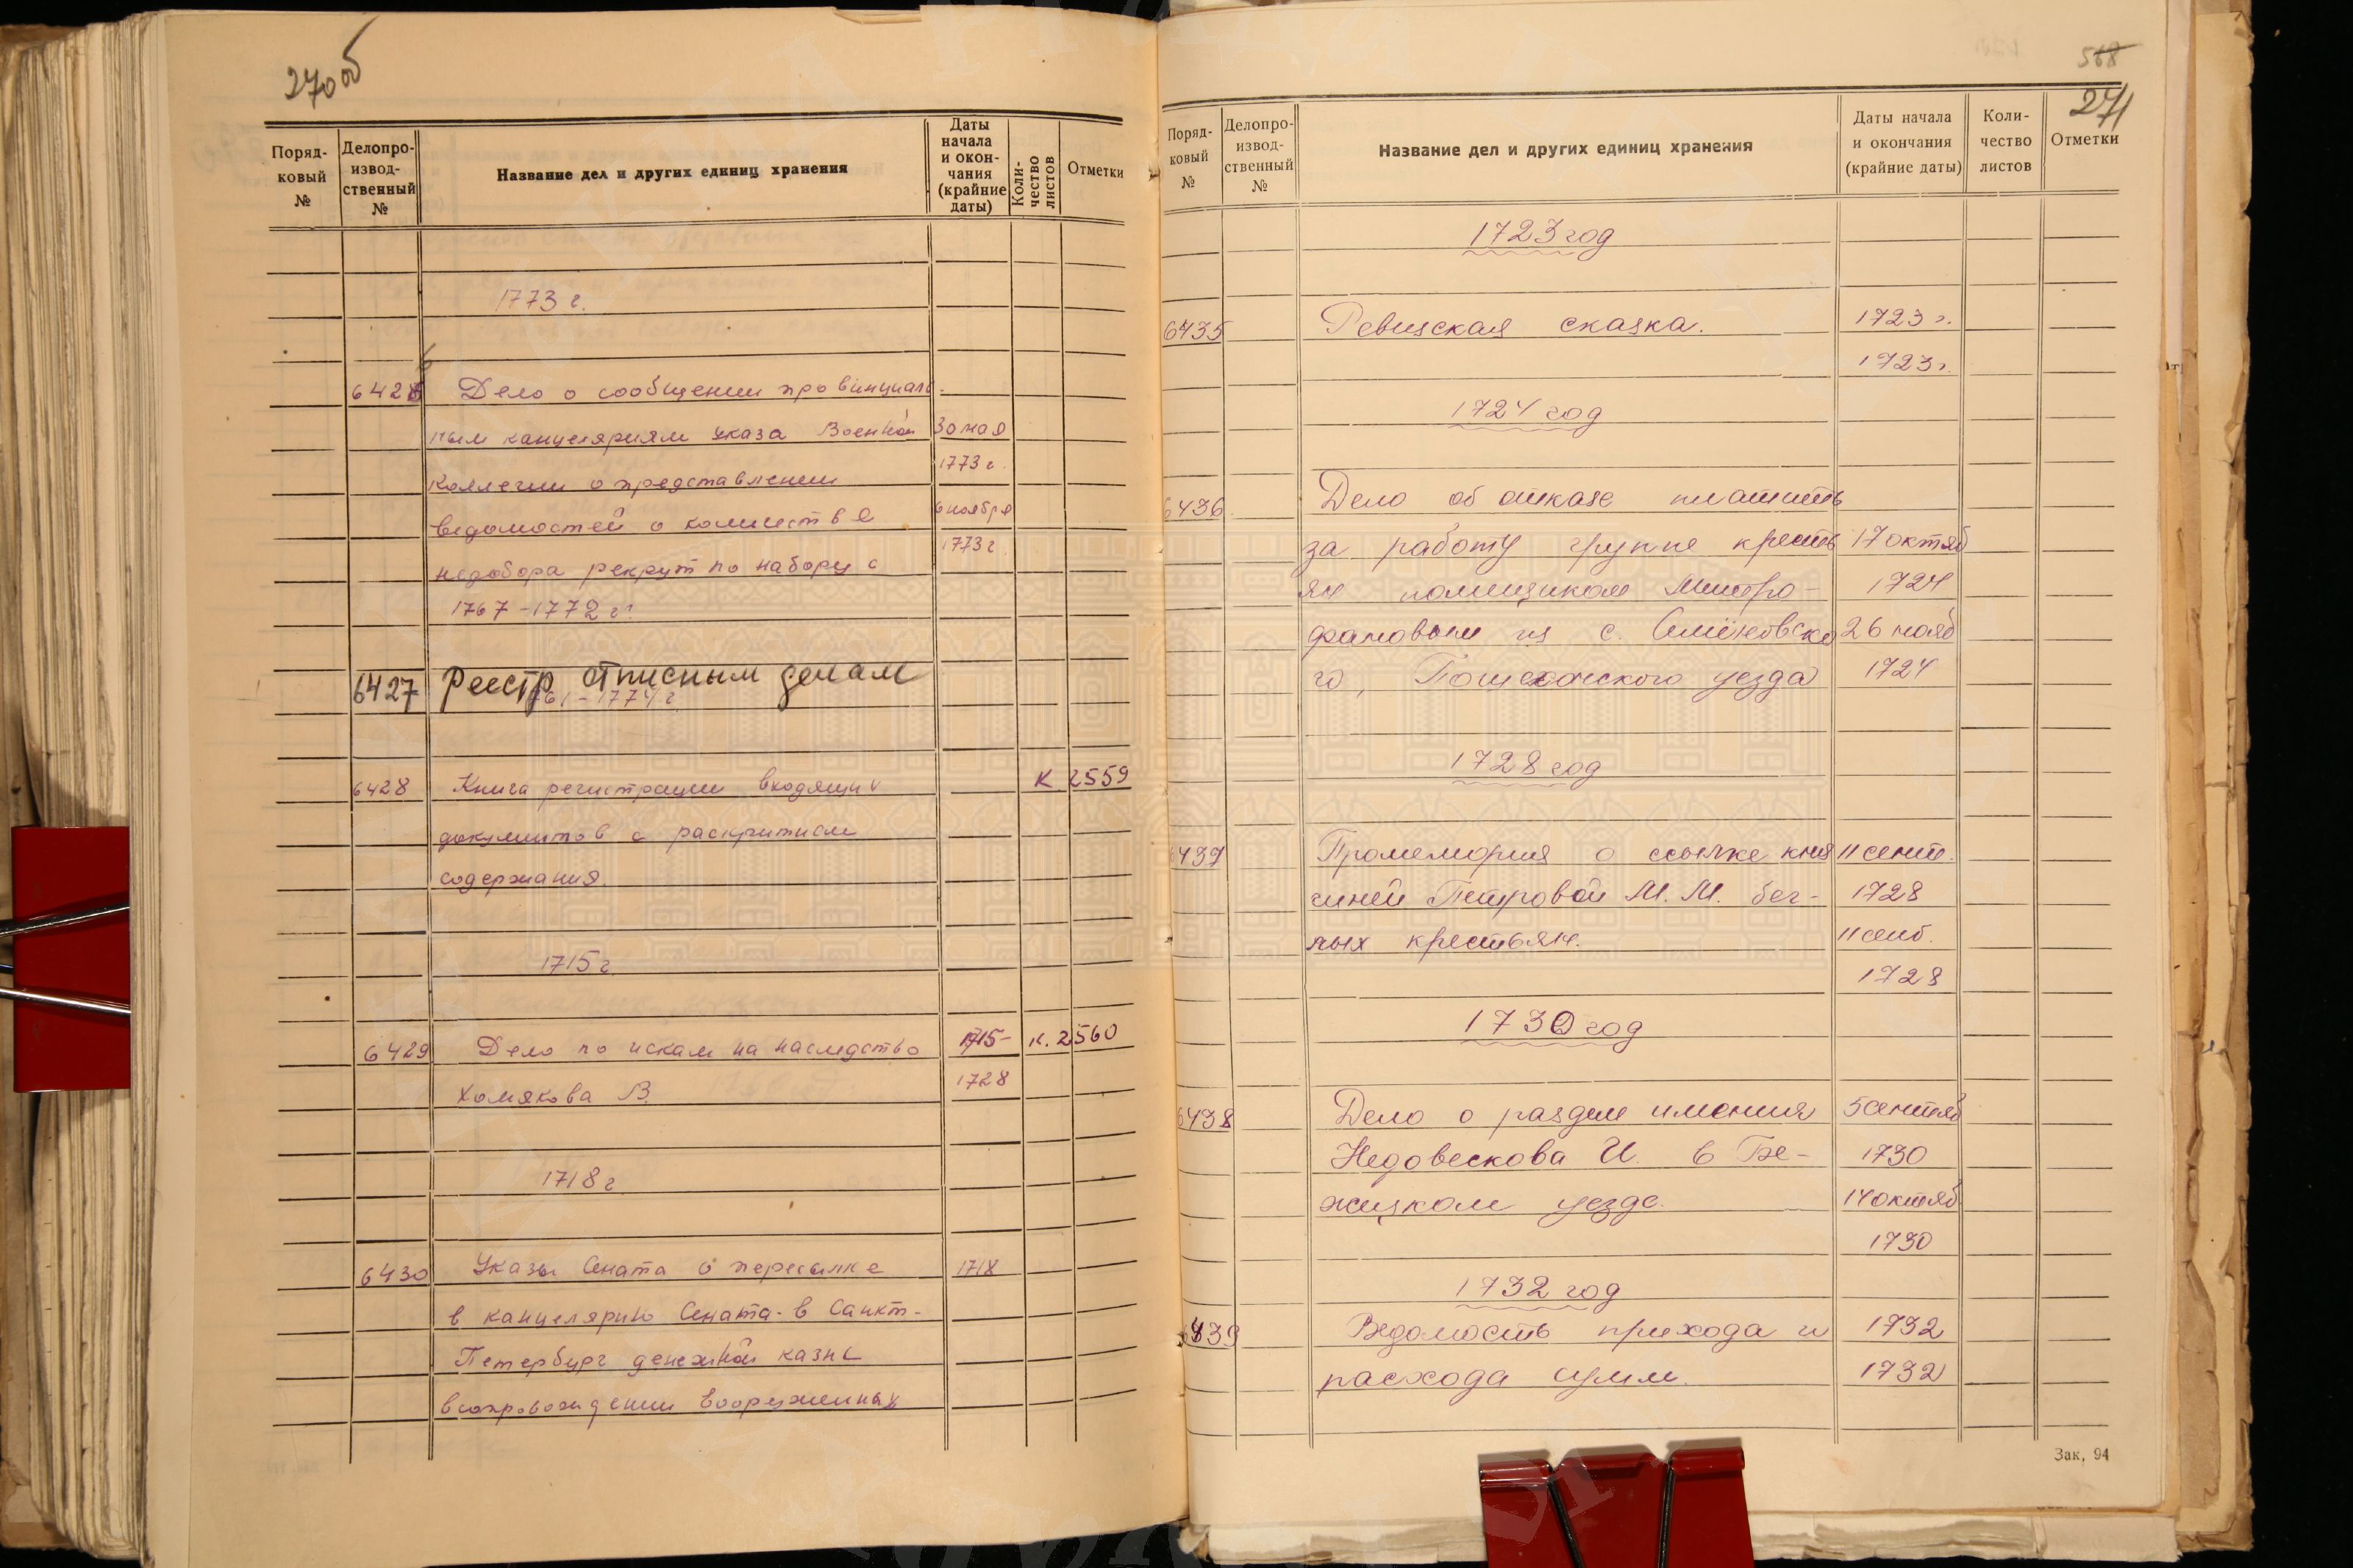 270об
Поряд-
ковый
№
Делопро-
извод-
ственный
№
Название дел и других единиц хранения
Даты
начала
и окон-
чания
(крайние
даты)
Коли-
чество
листов
Отметки
1773 г.
6426 Дело о сообщении провинциаль-
ным канцеляриям указа Военной 30 мая
1773 г.
коллегии о представлении
ведомостей о количестве 6 ноября
1773 г.
недобора рекрут по набору с
1767-1772 гг.
6427 Реестр описным делам
1761-1774 г.
6428 Книга регистрации входящих К 2559
документов с раскрытием
содержания.
1715 г.
6429 Дело по искам на наследство 1715- К. 2560
Хомякова В. 1728
1718 г.
6430 Указы Сената о пересылке 1718
в канцелярию Сената в Санкт-
Петербург денежной казны
в сопровождении вооруженных
568
271
Поряд-
ковый
№
Делопро-
извод-
ственный
№
Название дел и других единиц хранения
Даты начала
и окончания
(крайние даты)
Коли-
чество
листов
Отметки
1723 год
6435 Ревизская сказка. 1723 г.
1723 г.
1724 год
6436 Дело об отказе платить
за работу группе кресть 17 октяб
ян помещиком Митро- 1724
фановым из с. Семёновско 26 нояб
го, Пошехонского уезда 1724
1728 год
6437 Промемория о ссылке кня 11 сент.
гиней Петровой М. М. бег- 1728
лых крестьян. 11 сент.
1728
1730 год
6438 Дело о разделе имения 5 сентяб
Недовескова И. в Бе- 1730
жецком уезде. 14 октяб
1730
1732 год
6439 Ведомость прихода и 1732
расхода сумм. 1732
Зак, 94